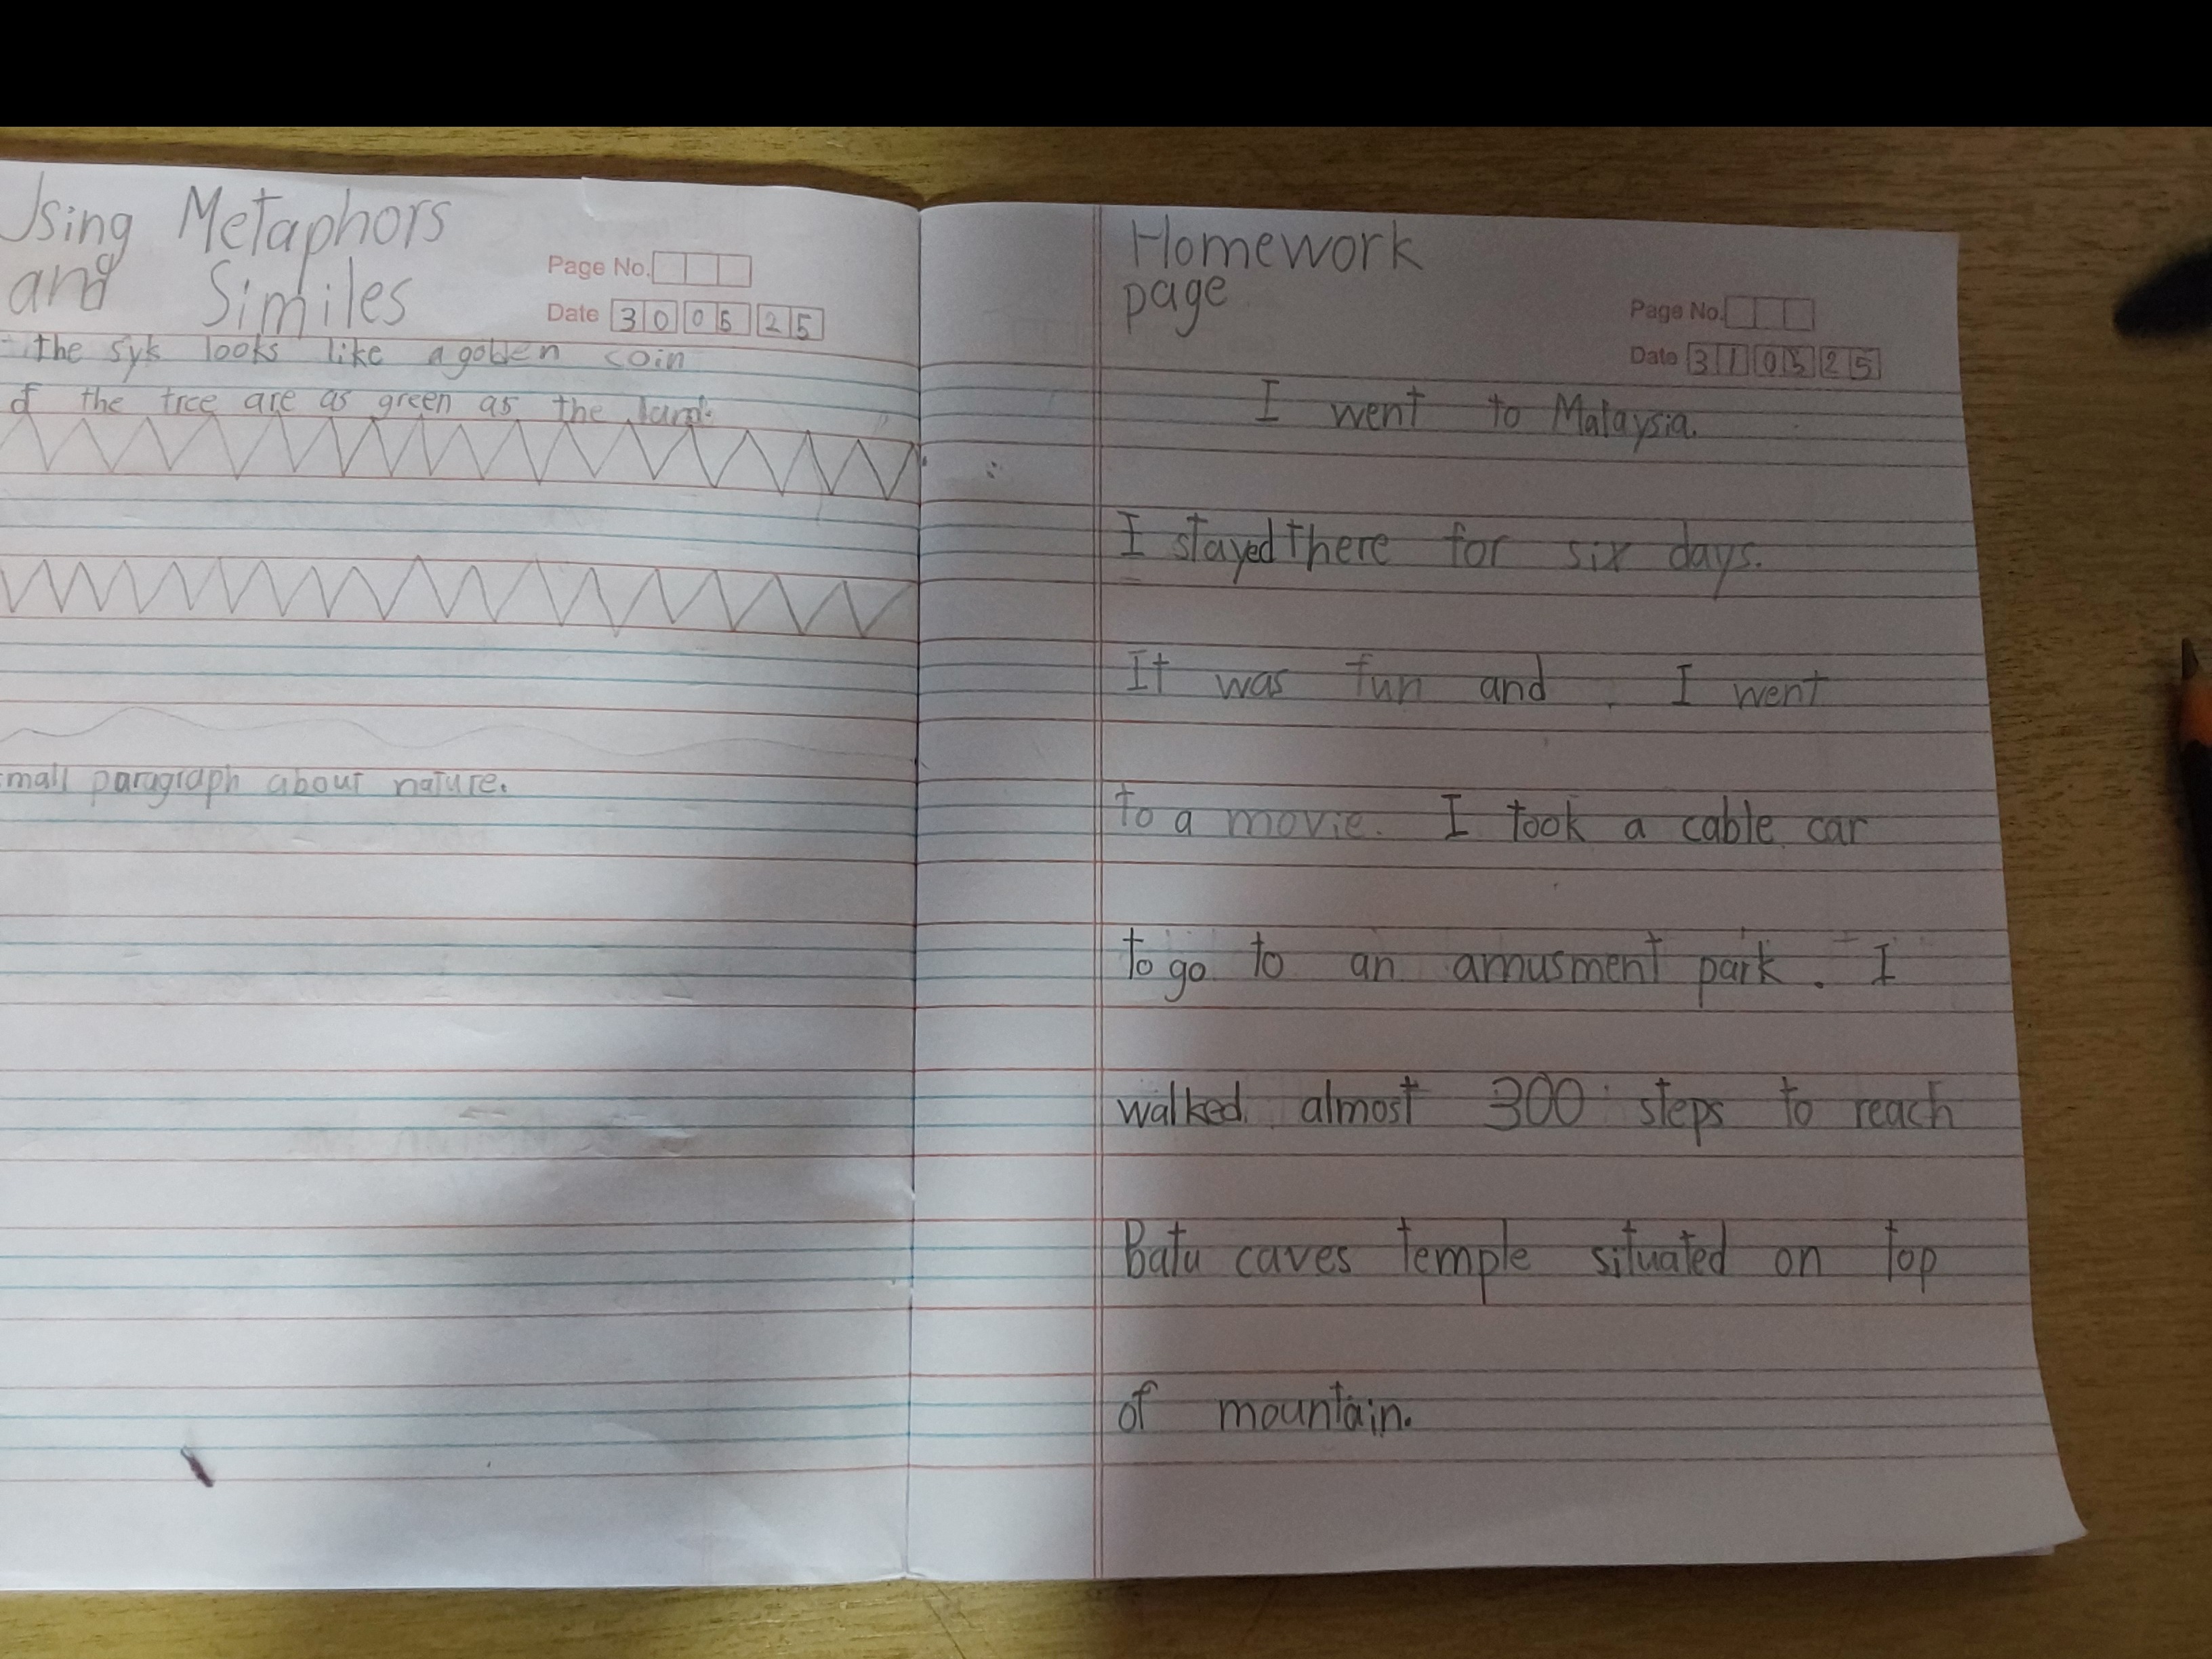 Using Metaphors
and Similes
Page No.
Date 30 05 25
the syk looks like a golden coin
of the tree are as green as the
mall paragraph about nature.
Homework
page
Page No.
Date 31 05 25
I went to Malaysia.
I stayed there for six days.
It was fun and I went
to a movie. I took a cable car
to go to an amusment park. I
walked almost 300 steps to reach
Batu caves temple situated on top
of mountain.